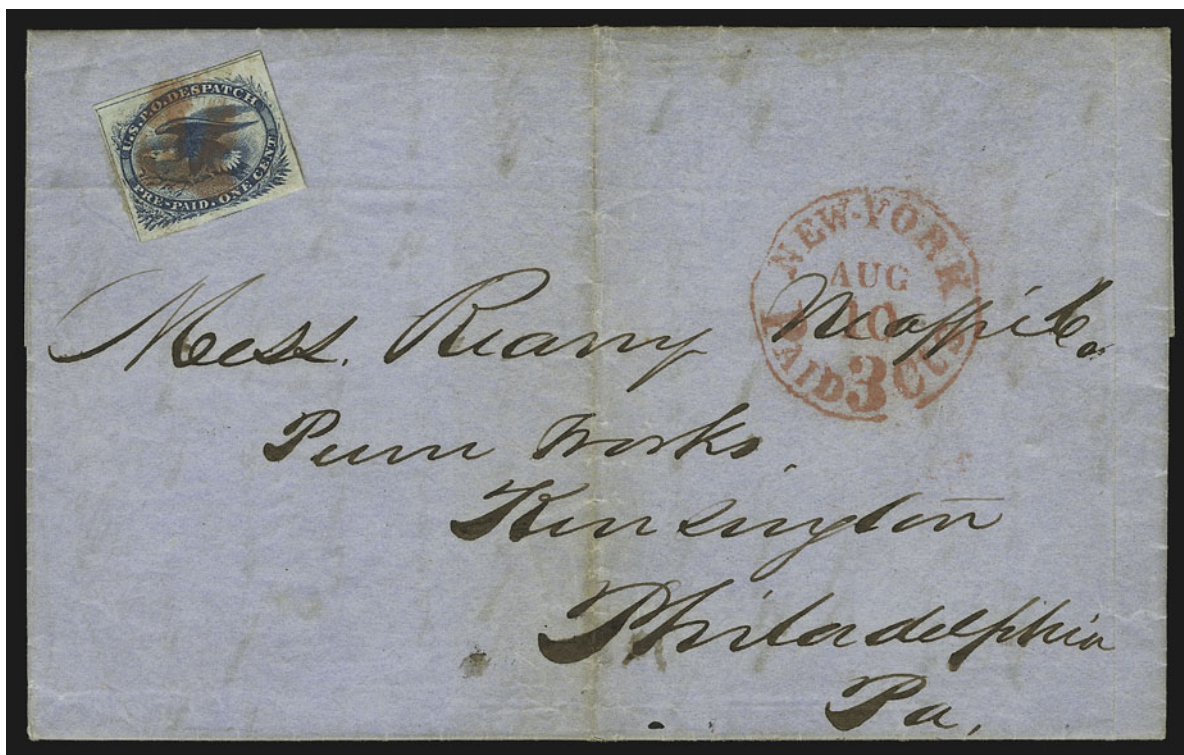 U.S.P.O. DESPATCH
PRE-PAID. ONE CENT
NEW-YORK
AUG
10
PAID 3 CTS
Mess. Reany Neafie & Co.
Penn Works.
Kensington
Philadelphia
Pa.